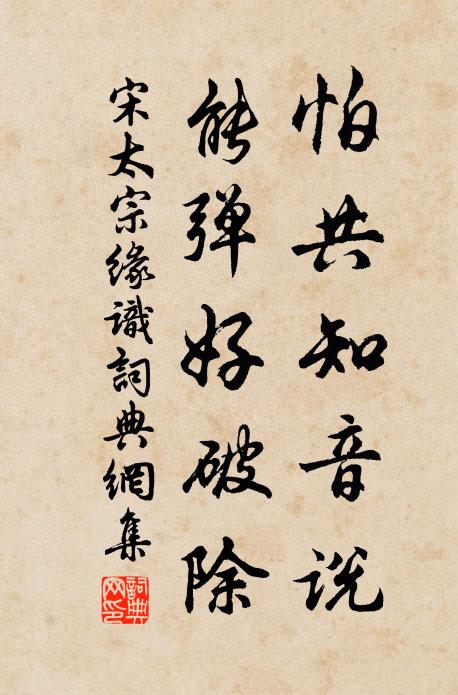 怕共知音说
能弹好破除
宋太宗缘識詞典網集
詞典网印